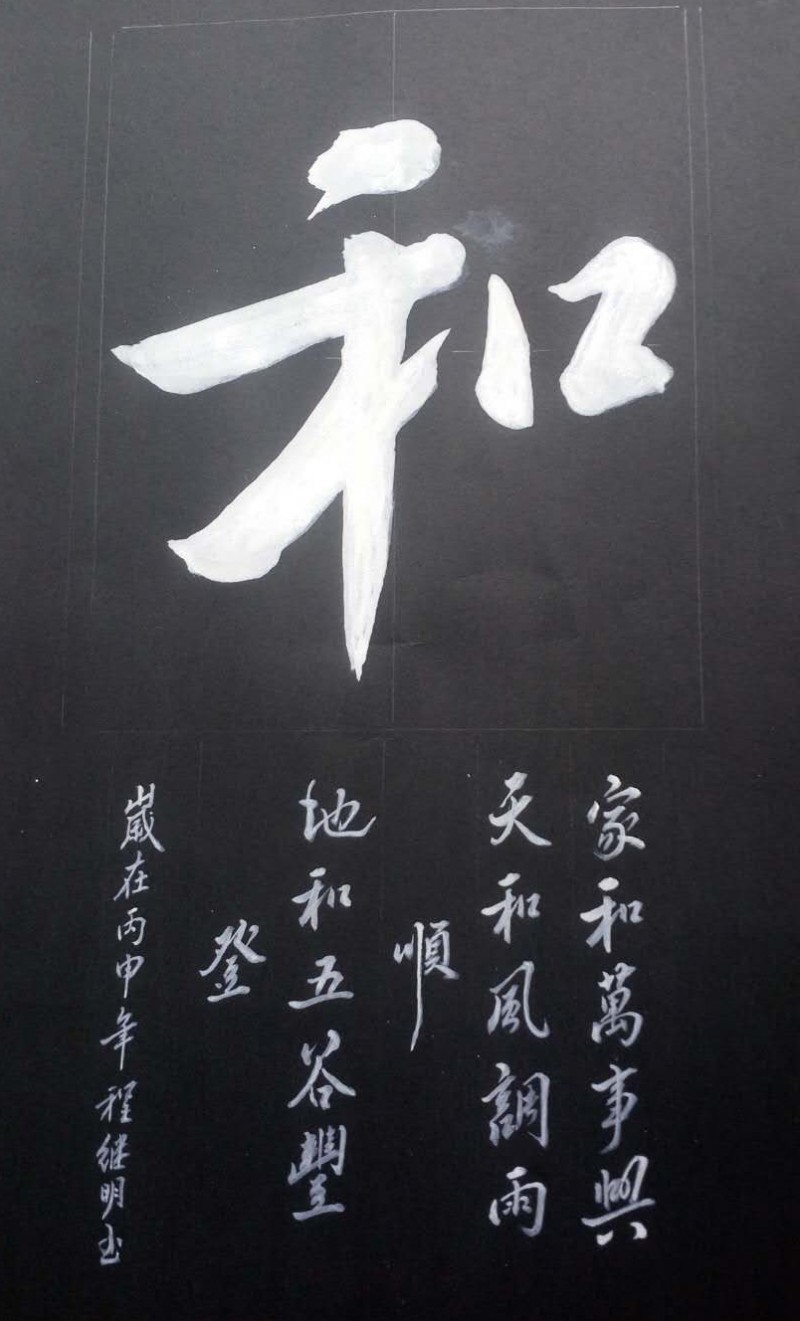 和
家和萬事興
天和風調雨
順
地和五谷豐
登
嵗在丙申年程继明书